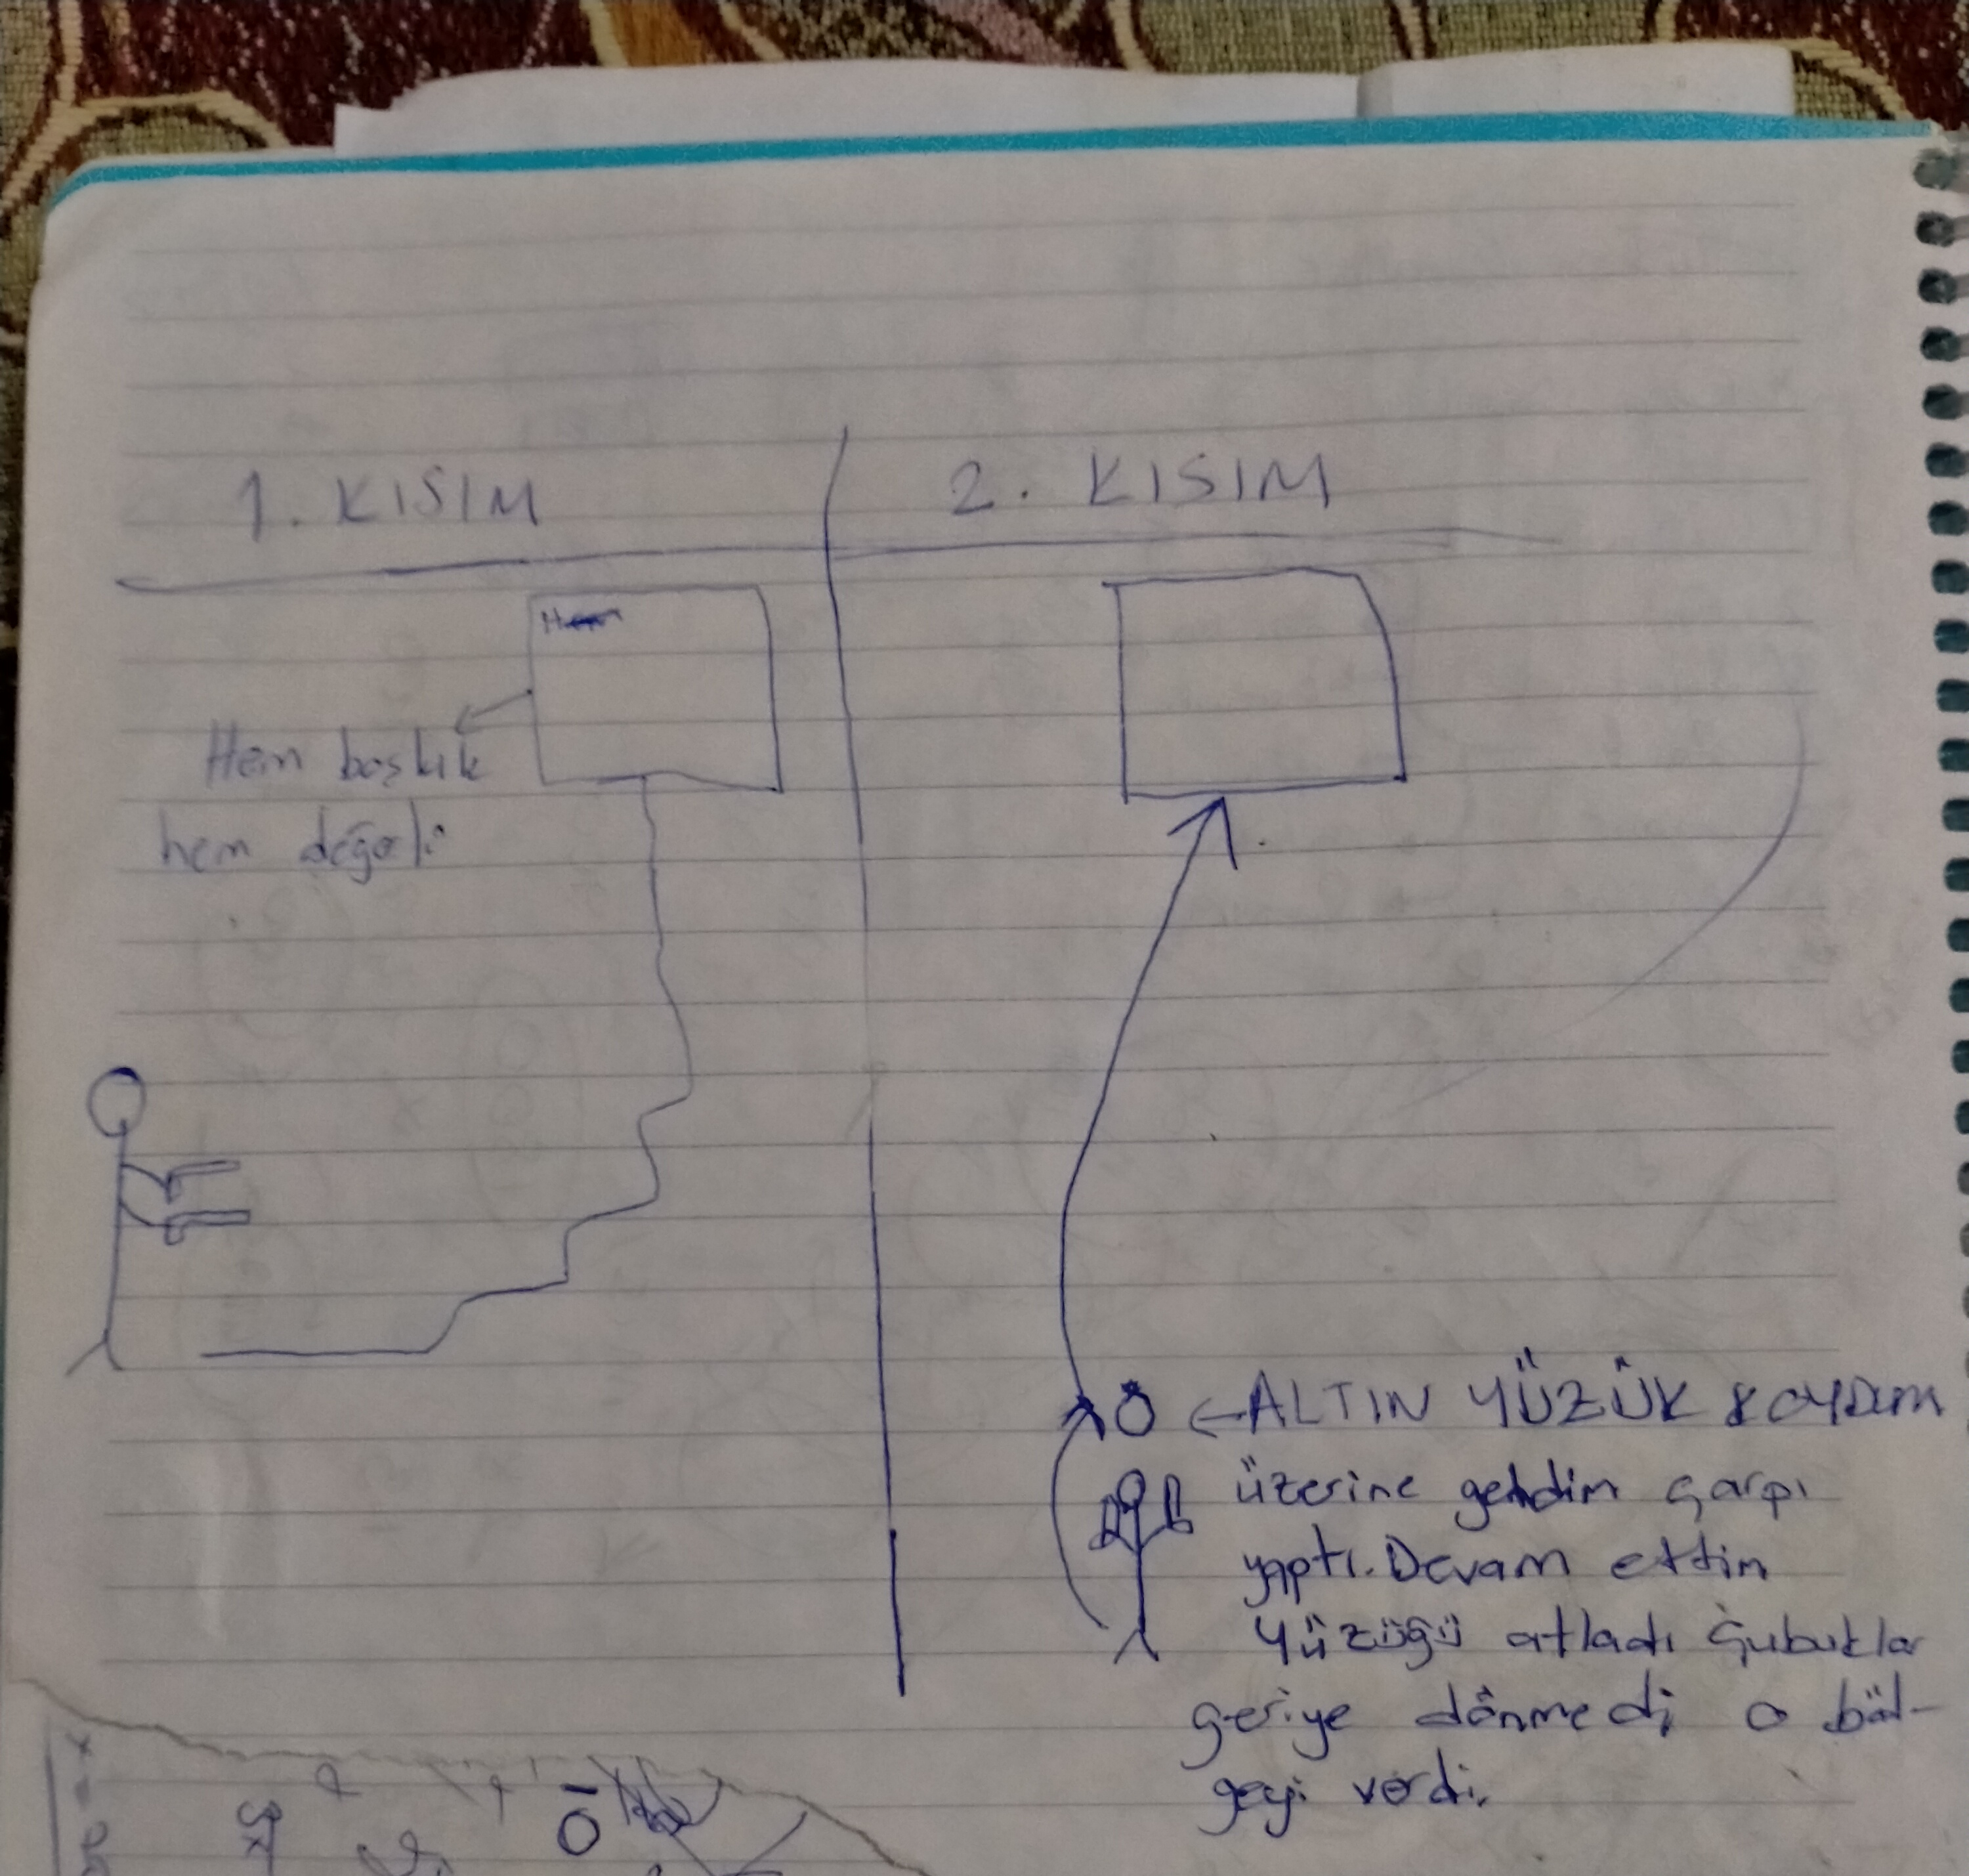 1. KISIM
2. KISIM
Hem
Hem boşluk
hem değerli
←ALTIN YÜZÜK KOYDUM
üzerine geldim çarpı
yaptı. Devam ettim
Yüzüğü atladı Çubuklar
geriye dönmedi o böl-
geyi verdi.